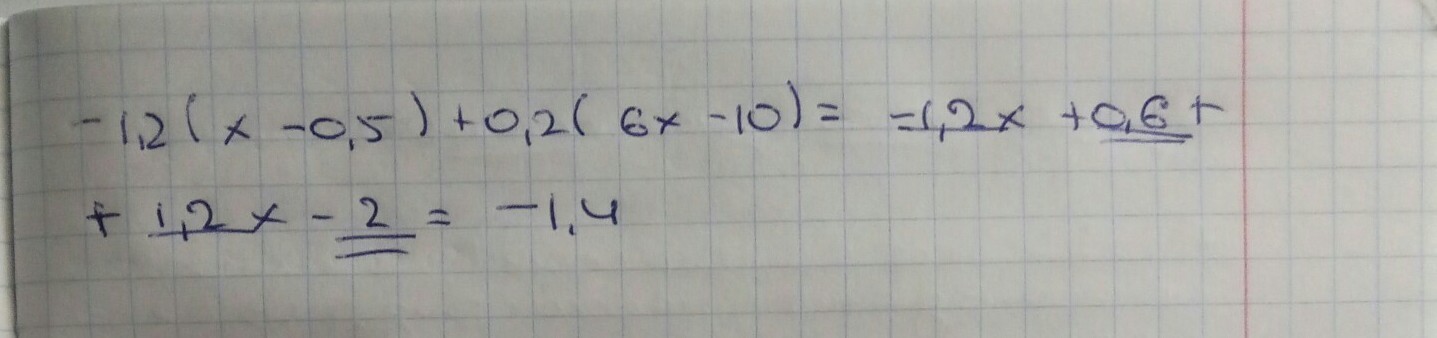 -1,2( x -0,5 ) +0,2( 6x -10) = -1,2x +0,6+
+ 1,2x - 2 = -1,4